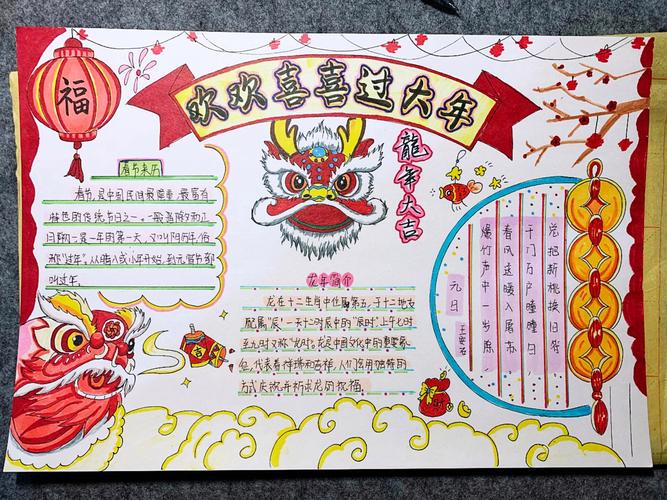 福
欢欢喜喜过大年
龍年大吉
春节来历
春节,是中国民间最隆重、最富有
特色的传统节日之一。一般指除夕和正
月初一是一年的第一天,又叫阴历年,俗
称"过年"。从腊八或小年开始,到元宵节都
叫过年。
龙年简介
龙在十二生肖中位居第五,于十二地支
配属"辰",一天十二时辰中的"辰时",上午七时
至九时又称"龙时"。龙是中国文化中的重要象
征,代表着祥瑞和吉祥,人们会用独特的
方式庆祝并祈求龙的祝福。
元日 王安石
爆竹声中一岁除,
春风送暖入屠苏。
千门万户曈曈日
总把新桃换旧符
财